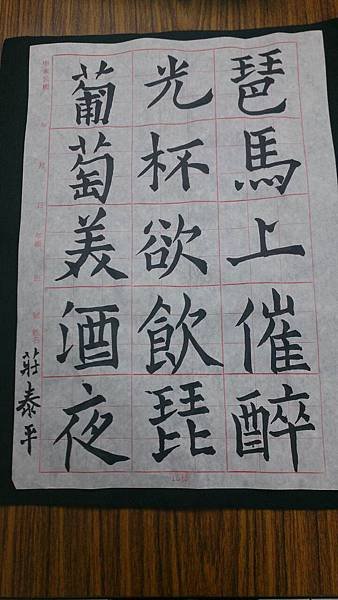 葡萄美酒夜
光杯欲飲琵
琶馬上催醉
莊泰平